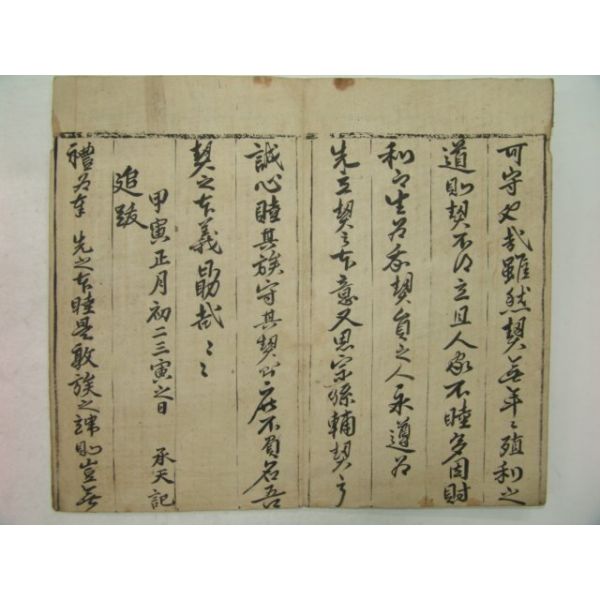 可守也哉雖然契無年〻殖利之
道則契不得立且人家不睦多因財
利而生為吾契員之人永遵為
先立契之本意又思宗孫輔契之
誠心睦其族守其契則庶不負名吾
契之本義勖哉〻〻
甲寅正月初二三寅之日 承天記
追跋
禮為本 先之本睦是敦族之端則豈無